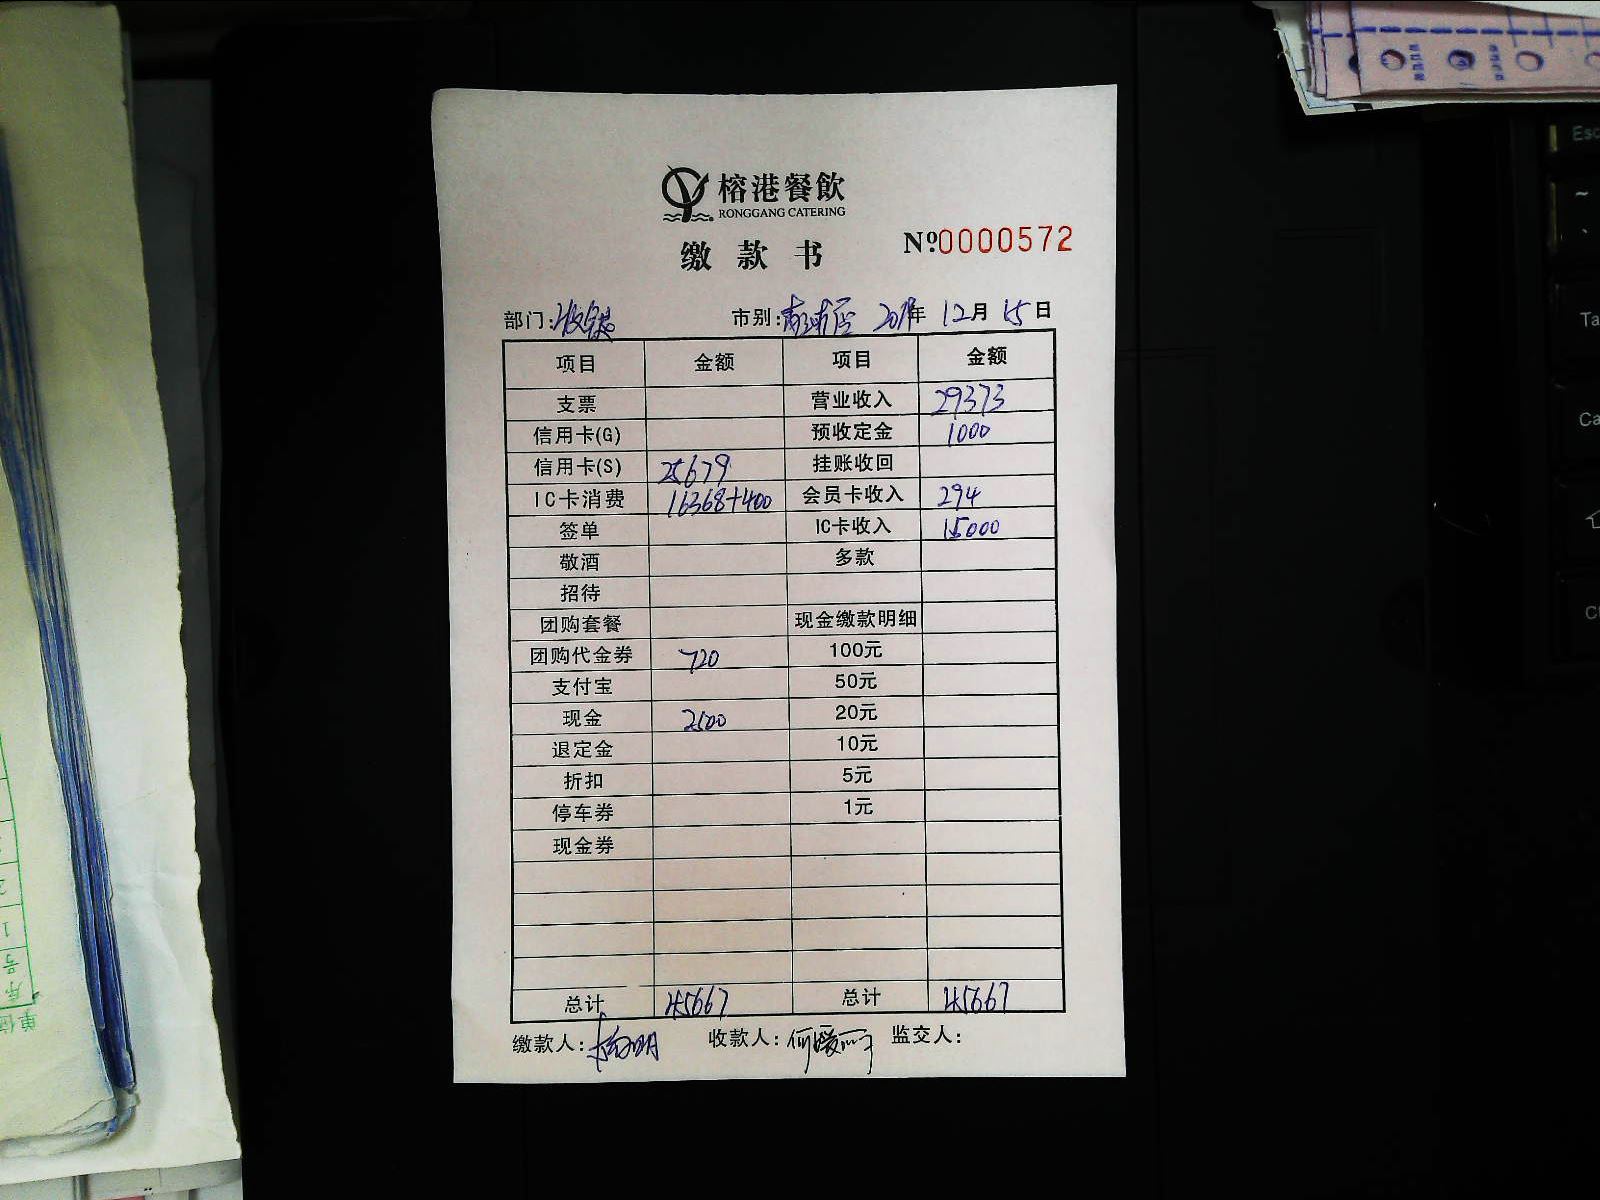 榕港餐飲
RONGGANG CATERING
缴款书 №0000572
部门:收银 市别: 年 12月 15日
项目 金额 项目 金额
支票 营业收入 29373
信用卡(G) 预收定金 1000
信用卡(S) 25679 挂账收回
IC卡消费 16368+400 会员卡收入 294
签单 IC卡收入 15000
敬酒 多款
招待
团购套餐 现金缴款明细
团购代金券 720 100元
支付宝 50元
现金 2500 20元
退定金 10元
折扣 5元
停车券 1元
现金券
总计 45667 总计 45667
缴款人: 收款人: 监交人:
Esc
~
Ta
Ca